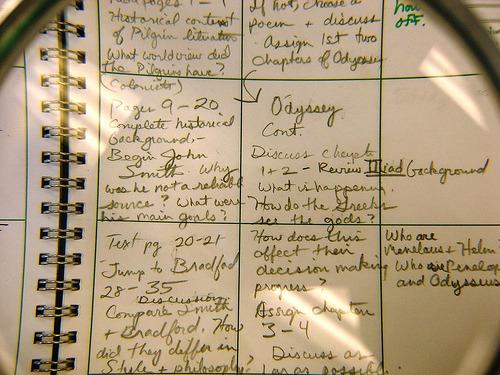 pages 1 - 1
Historical context
of Pilgrim literature
What worldview did
the Pilgrims have?
(Colonists)
Pages 9-20
Complete historical
background,-
Begin John
Smith. Why
was he not a reliable
source? What were
his main goals?
Text pg. 20-21
Jump to Bradford
28-35
Discussion:
Compare Smith
+ Bradford. How
did they differ in
Style + philosophy?
If not, choose a
poem + discuss
Assign 1st two
chapters of Odyssey
Odyssey
Cont.
Discuss chapt
1+2 - Review Iliad background
What is happening.
How do the Greeks
see the gods?
How does this
affect their
decision making
process?
Assign chapter
3-4
Discuss as
far as possible.
how
OFF.
Who are
Menelaus + Helen
Who are Penelope
and Odysseus